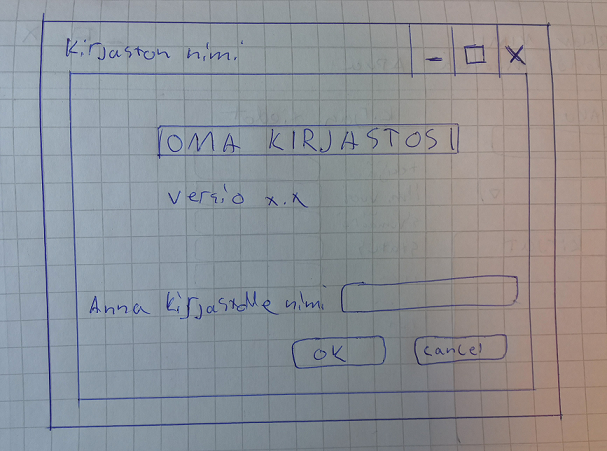 Kirjaston nimi - □ X
OMA KIRJASTOSI
versio x.x
Anna kirjastolle nimi
OK cancel